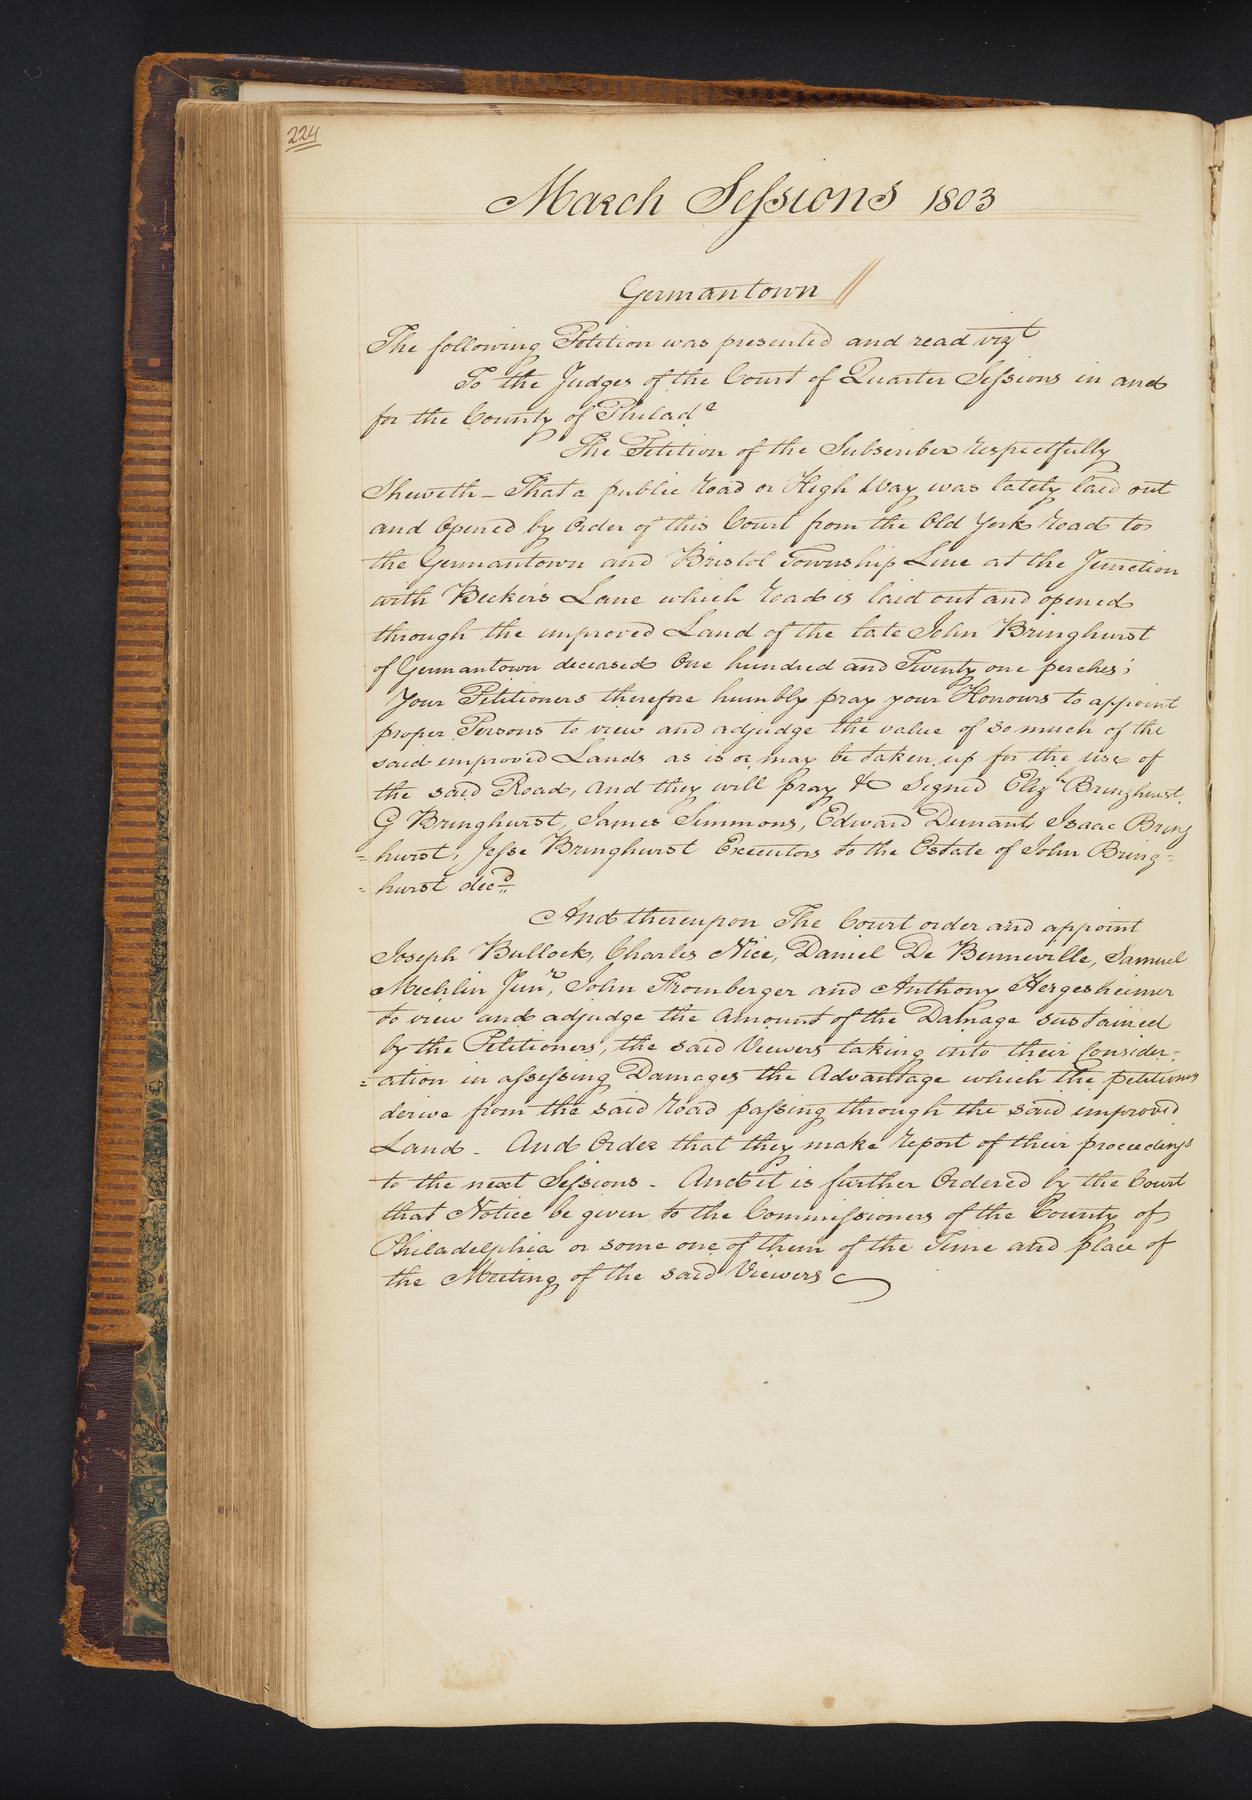 224
March Sessions 1803
Germantown
The following Petition was presented and read vizt
To the Judges of the Court of Quarter Sessions in and
for the County of Philada
The Petition of the Subscriber respectfully
Sheweth - That a public road or High Way was lately laid out
and Opened by Order of this Court from the Old York Road to
the Germantown and Bristol Township Line at the Junction
with Becker's Lane which Road is laid out and opened
through the improved Land of the late John Bringhurst
of Germantown deceased One hundred and Twenty one perches;
Your Petitioners therefore humbly pray your Honours to appoint
proper Persons to view and adjudge the value of so much of the
said improved Lands as is or may be taken up for the use of
the said Road, And they will pray &c Signed Elizh Bringhurst,
G Bringhurst, James Simmons, Edward Dunant, Isaac Bring
=hurst, Jesse Bringhurst Executors to the Estate of John Bring=
=hurst decd
And thereupon The Court order and appoint
Joseph Bullock, Charles Nice, Daniel De Benneville, Samuel
Mechlin Junr, John Fromberger and Anthony Hergesheimer
to view and adjudge the Amount of the Damage sustained
by the Petitioners, the said Viewers taking into their Consider=
=ation in assessing Damages the Advantage which the petitioners
derive from the said road passing through the said improved
Land - And Order that they make report of their proceedings
to the next Sessions - And it is further Ordered by the Court
that Notice be given to the Commissioners of the County of
Philadelphia or some one of them of the Time and place of
the Meeting of the said Viewers